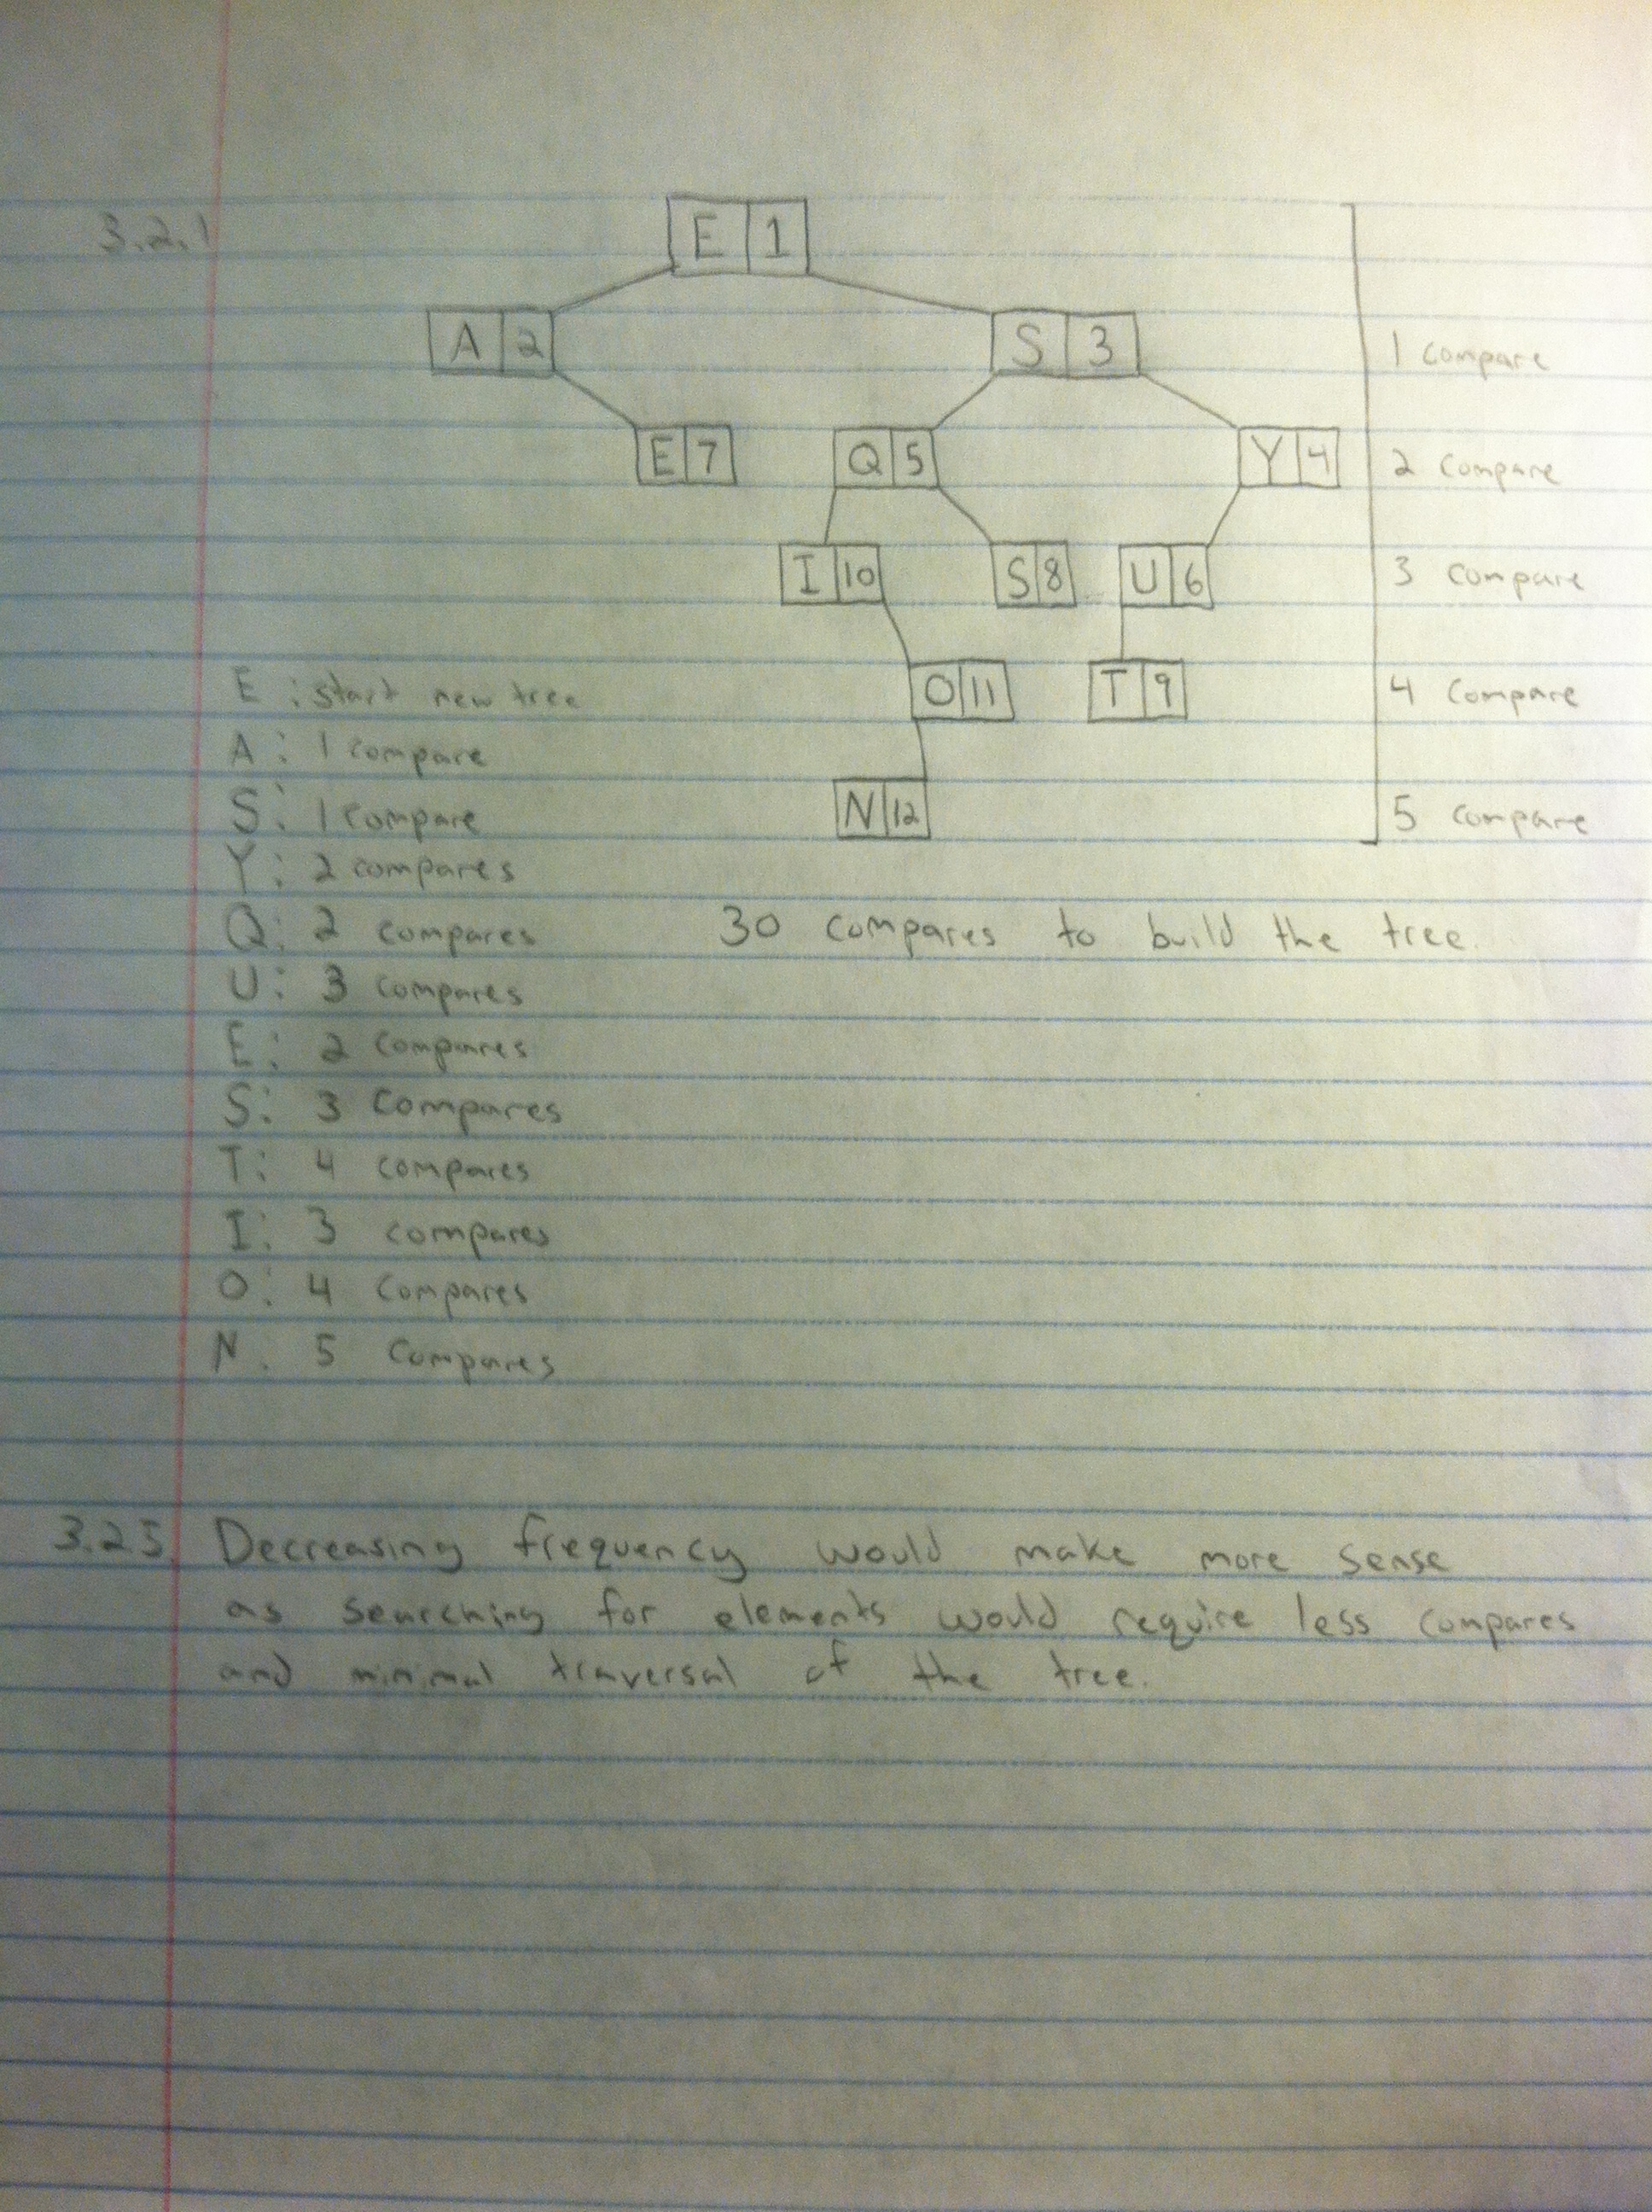 3.2.1
E 1
A 2 S 3 1 compare
E 7 Q 5 Y 4 2 compare
I 10 S 8 U 6 3 compare
O 11 T 9 4 compare
N 12 5 compare
E : start new tree
A : 1 compare
S : 1 compare
Y : 2 compares
Q : 2 compares
30 compares to build the tree.
U : 3 compares
E : 2 compares
S : 3 compares
T : 4 compares
I : 3 compares
O : 4 compares
N . 5 compares
3.25 Decreasing frequency would make more sense
as searching for elements would require less compares
and minimal traversal of the tree.